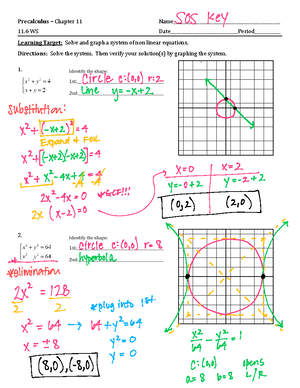 Precalculus – Chapter 11
Name SOS Key
11.6 WS
Date Period
Learning Target: Solve and graph a system of non linear equations.
Directions: Solve the system. Then verify your solution(s) by graphing the system.
1.
x² + y² = 4
x + y = 2
Identify the shape:
1st: Circle c:(0,0) r:2
2nd: Line y = -x+2
Substitution:
x² + (-x+2)² = 4
Expand & FOIL
x² + [(-x+2)(-x+2)] = 4
x² + x² -4x + 4 = 4
-4 -4
2x² - 4x = 0 *GCF!!!
2x (x-2) = 0
x = 0 x = 2
y = -0+2 y = -2+2
(0,2) (2,0)
2.
x² + y² = 64
x² - y² = 64
Identify the shape:
1st: Circle c:(0,0) r=8
2nd: hyperbola
*Elimination
2x² = 128
2 2
x² = 64
x = ±8
*plug into 1st
64 + y² = 64
y² = 0
y = 0
(8,0),(-8,0)
x²/64 - y²/64 = 1
c:(0,0) opens
a=8 b=8 L/R